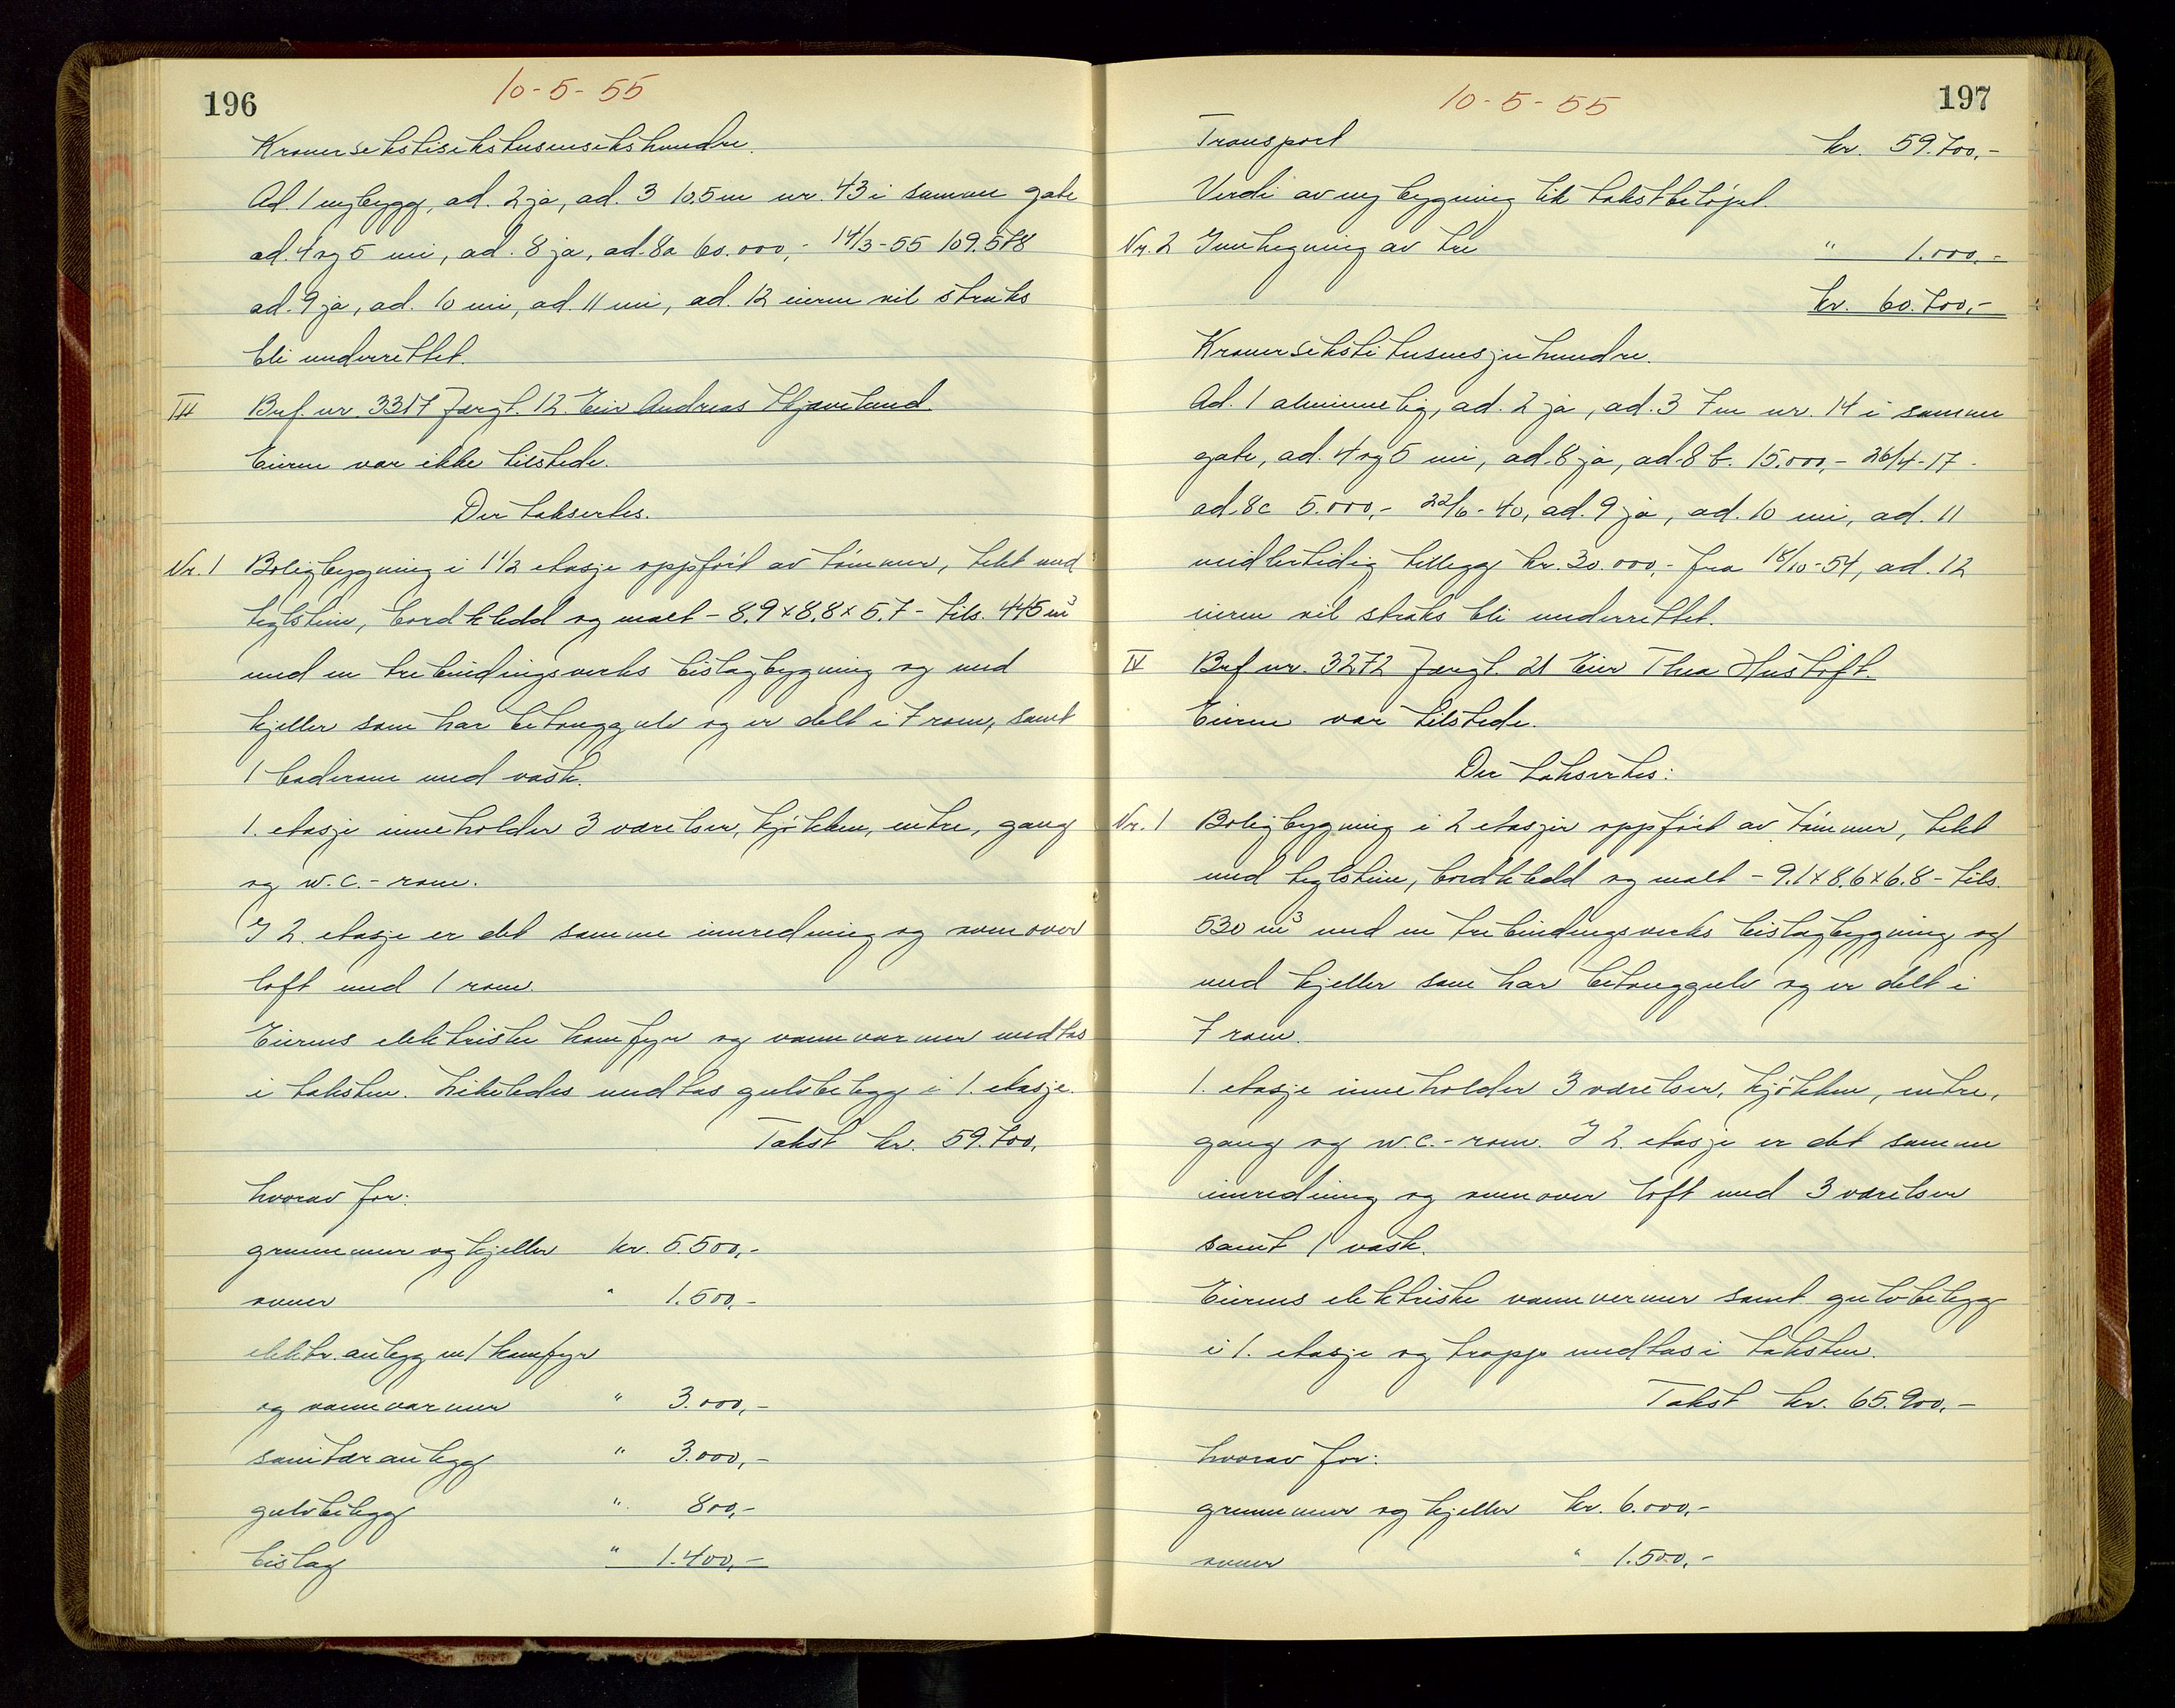 196
10-5-55
Kronersekstisekstusensekshundre.
Ad. 1 nybygg, ad. 2 ja, ad. 3 10.5 m nr. 43 i samme gate
ad. 4 og 5 nei, ad. 8 ja, ad. 8a 60.000,- 14/3-55 109.578
ad. 9 ja, ad. 10 nei, ad. 11 nei, ad. 12 eieren vil straks
bli underrettet.
III Brf. nr 3317 Jærgt. 12. Eier Andreas
Eieren var ikke tilstede.
Der taksertes.
Nr. 1 Boligbygning i 1 1/2 etasje oppført av tømmer, tekt med
teglstein, bordkledd og malt - 8,9 x 8,8 x 5.7 - tils. 445 m³
med en trebindingsverks bislagbygning og med
kjeller som har betonggulv og er delt i 7 rom, samt
1 baderom med vask.
1. etasje inneholder 3 værelser, kjøkken, entre, gang
og w.c.-rom.
I 2. etasje er det samme innredning og ovenover
loft med 1 rom.
Eierens elektriske komfyr og vannvarmer medtas
i taksten. Likeledes medtas gulvbelegg i 1. etasje.
Takst kr. 59.700,
hvorav for:
grunnmur og kjeller kr. 5.500,-
ovner " 1.500,-
elektr. anlegg m/komfyr
og vannvarmer " 3.000,-
sanitæranlegg " 3.000,-
gulvbelegg " 800,-
bislag " 1.400,-
197
10-5-55
Transport kr. 59.700,-
Verdi av ny bygning lik takstbeløpet.
Nr. 2 Innhegning av tre " 1.000,-
kr. 60.700,-
Kronersekstitusensjuhundre.
Ad. 1 alminnelig, ad. 2 ja, ad. 3 7 m nr. 14 i samme
gate, ad. 4 og 5 nei, ad. 8 ja, ad. 8 b. 15.000,- 26/4-17.
ad. 8c 5.000,- 22/6-40, ad. 9 ja, ad. 10 nei, ad. 11
midlertidig tillegg kr. 30.000,- fra 18/10-54, ad. 12
eieren vil straks bli underrettet.
IV Brf nr. 3272 Jærgt. 21 Eier Thea Hustoft.
Eieren var tilstede.
Der taksertes:
Nr. 1 Boligbygning i 2 etasjer oppført av tømmer, tekt
med teglstein, bordkledd og malt - 9.1 x 8.6 x 6.8 - tils.
530 m³ med en trebindingsverks bislagbygning og
med kjeller som har betonggulv og er delt i
7 rom.
1. etasje inneholder 3 værelser, kjøkken, entre,
gang og w.c.-rom. I 2. etasje er det samme
innredning og ovenover loft med 3 værelser
samt 1 vask.
Eierens elektriske vannvermer samt gulvbelegg
i 1. etasje og trapp medtas i taksten.
Takst kr. 65.900,-
hvorav for:
grunnmur og kjeller kr. 6.000,-
ovner " 1.500,-